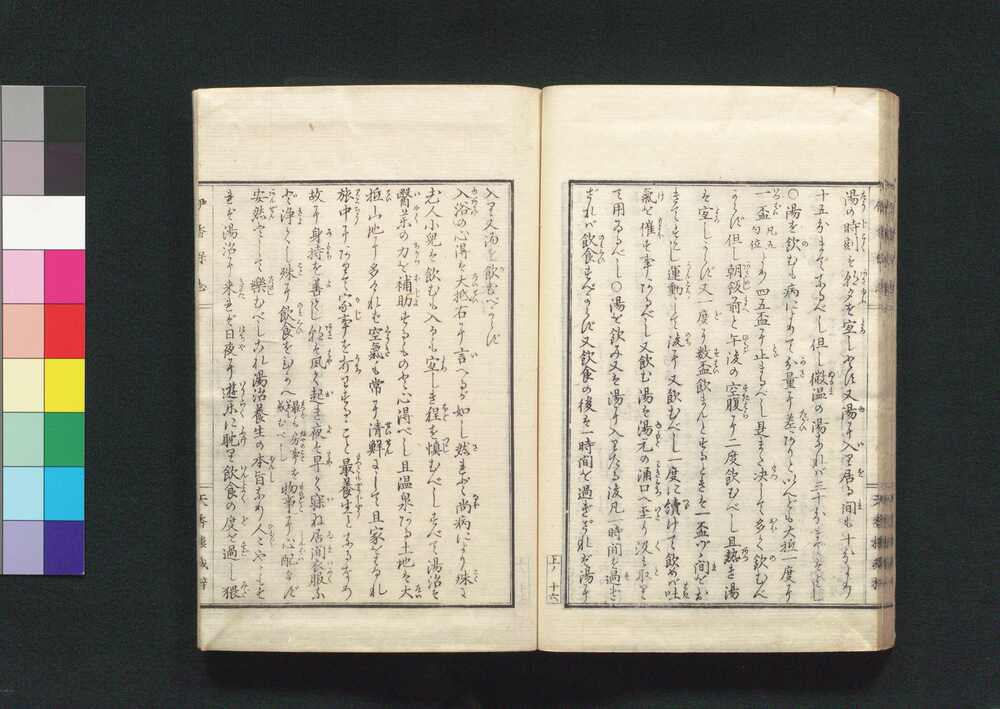 湯の時刻を朝夕を宜しとす又湯に入り居る間も十分より
十五分までなるべし但し微温の湯なれバ三十分までをよしとし
○湯を飲むも病によりて分量に差ひありと以へども大抵一度に
一盃凡五勺位より四五盃に止まるべし是より决して多く飲むべ
からず但し朝飯前と午後の空腹に二度飲むべし且熱き湯
を宜しからず又一度に数盃飲まんとするときを一盃づゝ間をお
きて少し運動して後に又飲むべし一度に續けて飲めバ吐
氣を催す事あるべし又飲む湯を湯元の涌口へ至り汲み取り
て用ゐるべし○湯を飲み又を湯に入りたる後凡一時間を過ぎ
ざれバ飲食すべからず又飲食の後を一時間を過ぎざれバ湯に
上ノ十六
入り又湯を飲むべからず
入浴の心得を大抵右に言へるが如し然れども尚病により殊に
老人小兒を飲むも入るも宜しき程を慎むべしすべて湯治を
醫藥の力を補助するものと心得べし且温泉ある土地を大
抵山地に多ければ空氣も常に清鮮にして且家をはなれ
旅中にありて家事を打ちすることと最養生となるなり
故に身持を善くし朝を風く起き夜を早く寐ね居間衣服ふ
ど浄くし殊に飲食をひかへ最も房事を戒むべし物事に心配なく
安然として樂むべしこれ湯治養生の本旨なり人々やゝもす
れバ湯治に来れバ日夜に遊楽に耽り飲食の度を過し猥
伊香保志
天香樓蔵梓